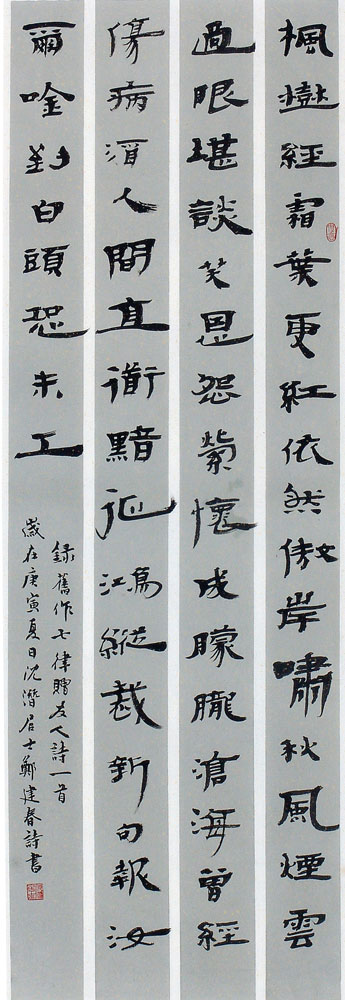 楓樹經霜葉更紅依然傲岸嘯秋風煙雲
過眼堪談笑恩怨縈懷成朦朧滄海曾經
傷病酒人間直衜黯征鴻縱裁新句報汝
爾唫到白頭恐未工
錄舊作七律贈友人詩一首
歲在庚寅夏日沈潛居士鄭建春詩書